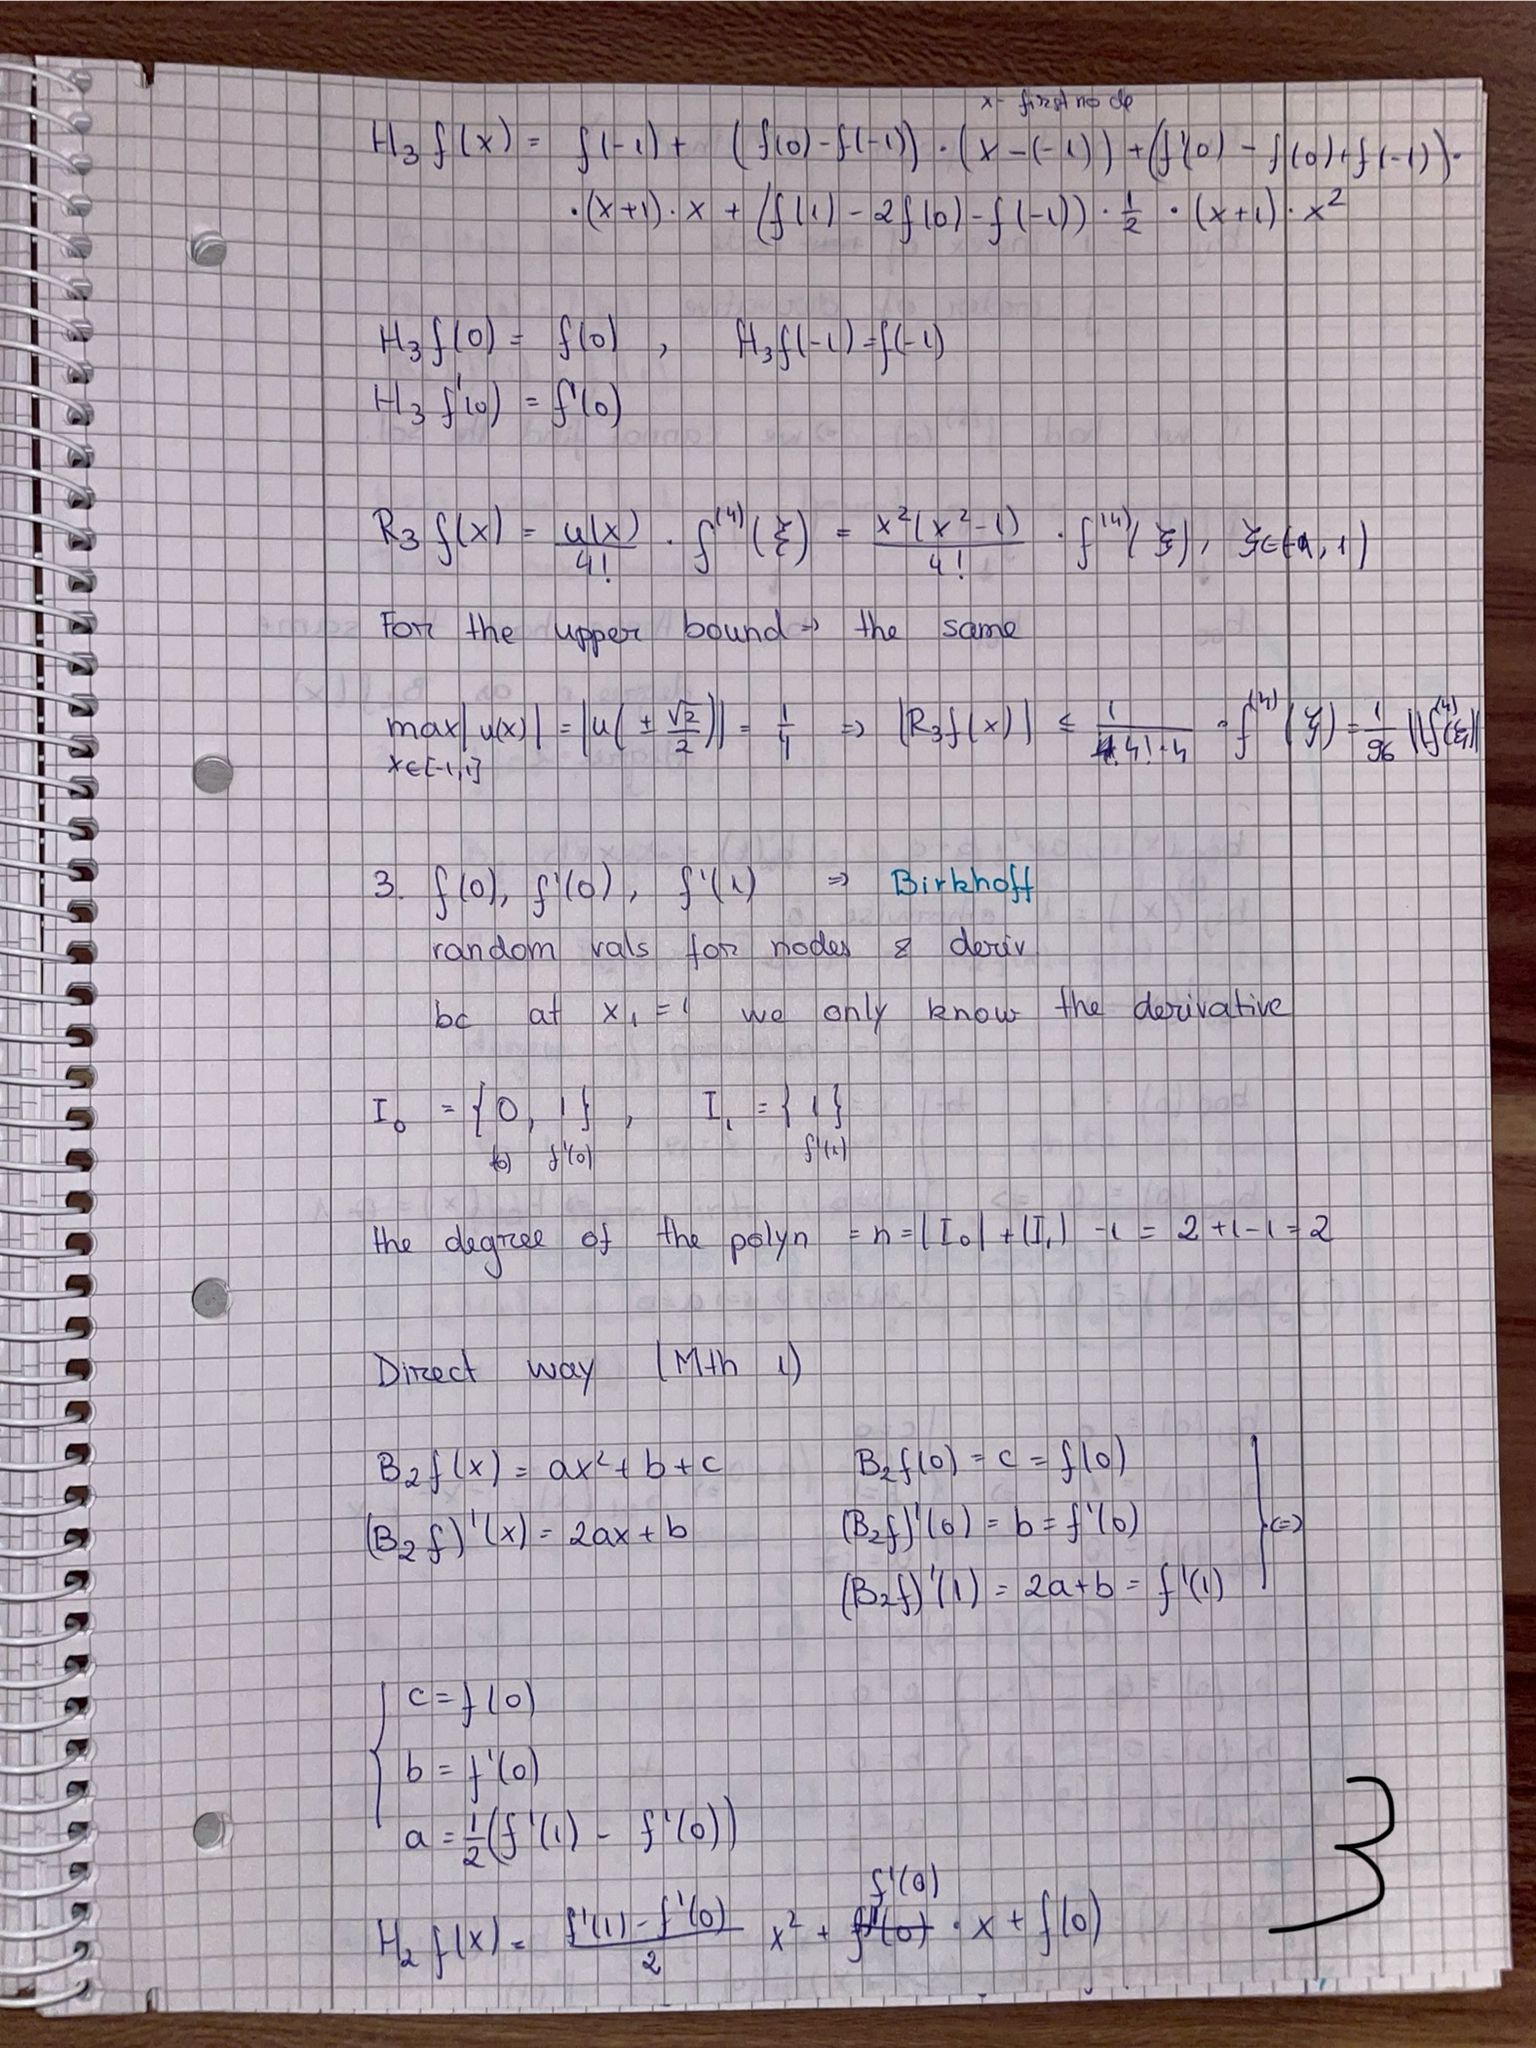 x - first node
H₃ f(x) = f(-1) + (f(0) - f(-1)) · (x - (-1)) + (f'(0) - f(0) + f(-1)) ·
· (x+1) · x + (f(1) - 2f(0) - f(-1)) · 1/2 · (x+1) · x²
H₃ f(0) = f(0) , H₃ f(-1) = f(-1)
H₃ f'(0) = f'(0)
R₃ f(x) = u(x)/4! · f⁽⁴⁾(ξ) = x²(x²-1)/4! · f⁽⁴⁾(ξ), ξ∈(-1, 1)
For the upper bound → the same
max |u(x)| = |u(± √2/2)| = 1/4 ⇒ |R₃ f(x)| ≤ 1/(4!·4) · f⁽⁴⁾(ξ) = 1/96 ||f⁽⁴⁾(ξ)||
x∈[-1,1]
3. f(0), f'(0), f'(1) ⇒ Birkhoff
random vals for nodes & deriv
bc at x₁ = 1 we only know the derivative
I₀ = {0, 1} , I₁ = {1}
f(0) f'(0) f'(1)
the degree of the polyn = n = |I₀| + |I₁| - 1 = 2 + 1 - 1 = 2
Direct way (Mth 1)
B₂f(x) = ax² + b + c B₂f(0) = c = f(0)
(B₂f)'(x) = 2ax + b (B₂f)'(0) = b = f'(0) (=)
(B₂f)'(1) = 2a + b = f'(1)
c = f(0)
b = f'(0)
a = 1/2 (f'(1) - f'(0))
f'(0)
H₂ f(x) = (f'(1) - f'(0))/2 x² + · x + f(0)
3